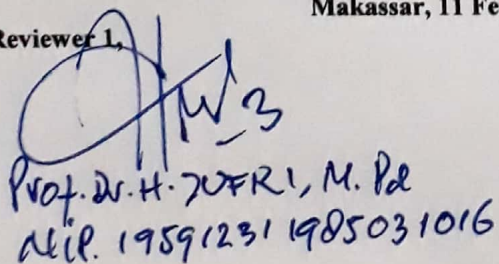 Makassar, 11 Fe
Reviewer 1,
Prof. Dr. H. JUFRI, M. Pd
Nip. 19591231 198503 1016